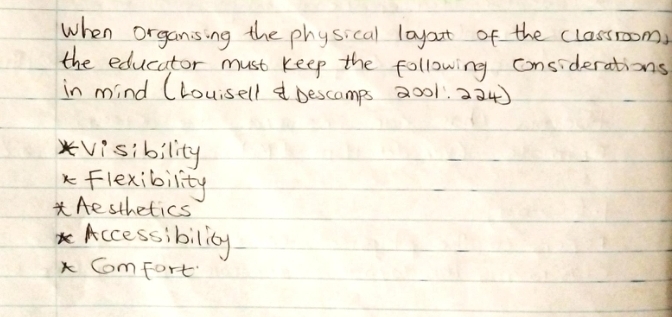 When organising the physical layout of the classroom,
the educator must keep the following considerations
in mind (Louisell & Descamps 2001:224)
* Visibility
* Flexibility
* Aesthetics
* Accessibility
* Comfort